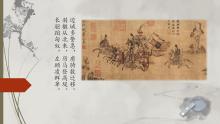 边城多警急，虏骑数迁移。
羽檄从北来，厉马登高堤。
长驱蹈匈奴，左顾凌鲜卑。